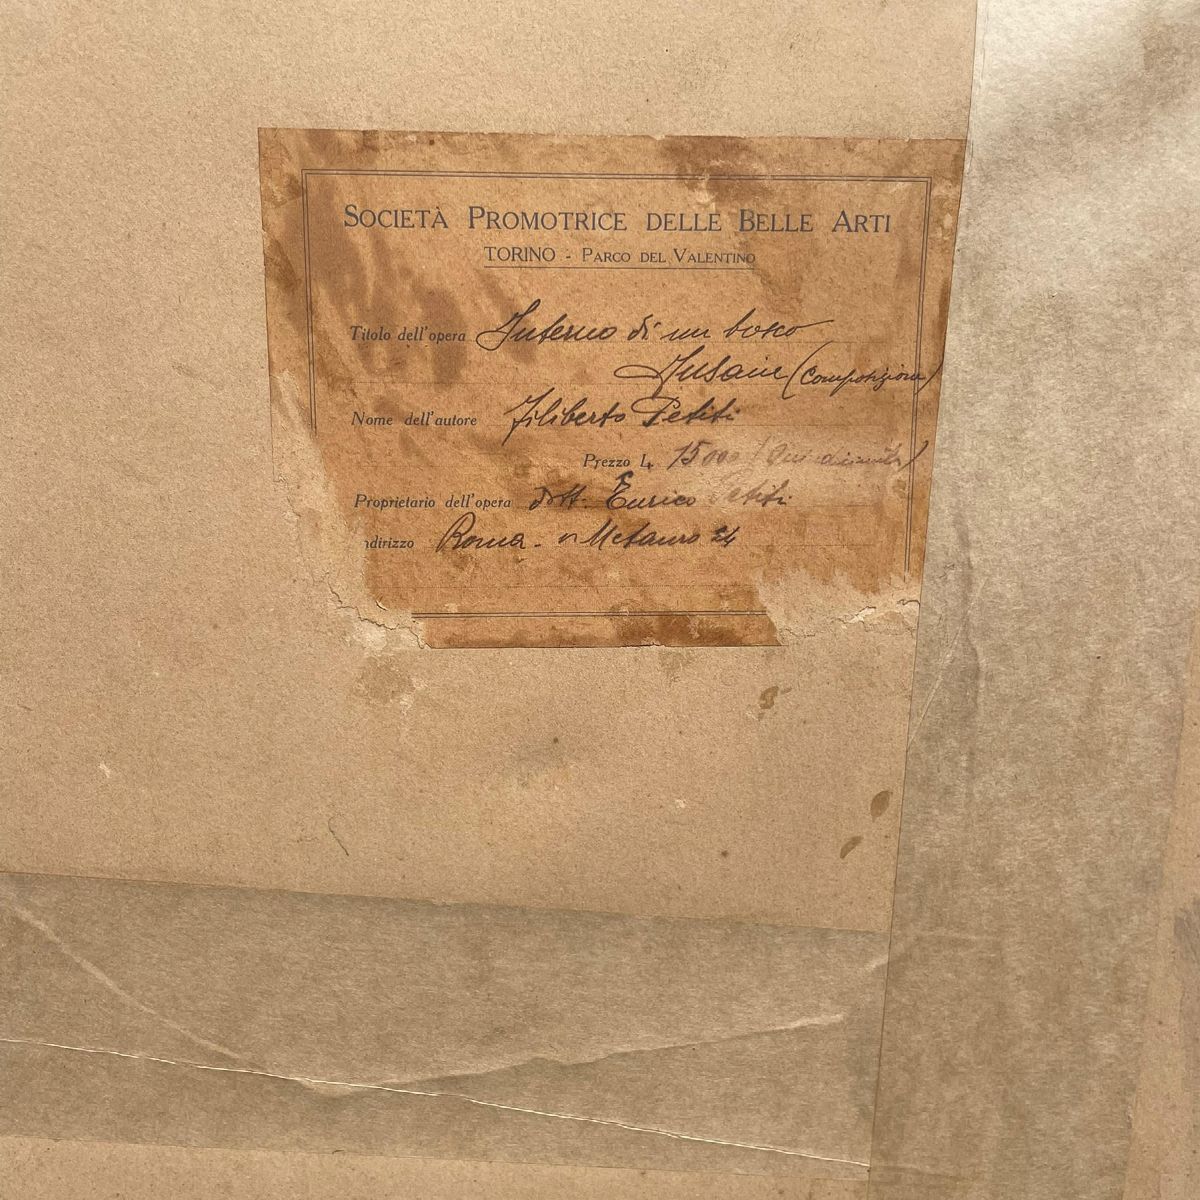 SOCIETÀ PROMOTRICE DELLE BELLE ARTI
TORINO - PARCO DEL VALENTINO
Titolo dell'opera Interno di un bosco
(composizione)
Nome dell'autore Filiberto Petiti
Prezzo L. 15000 (quindicimila)
Proprietario dell'opera dott. Enrico Petiti
ndirizzo Roma - v Metauro 24